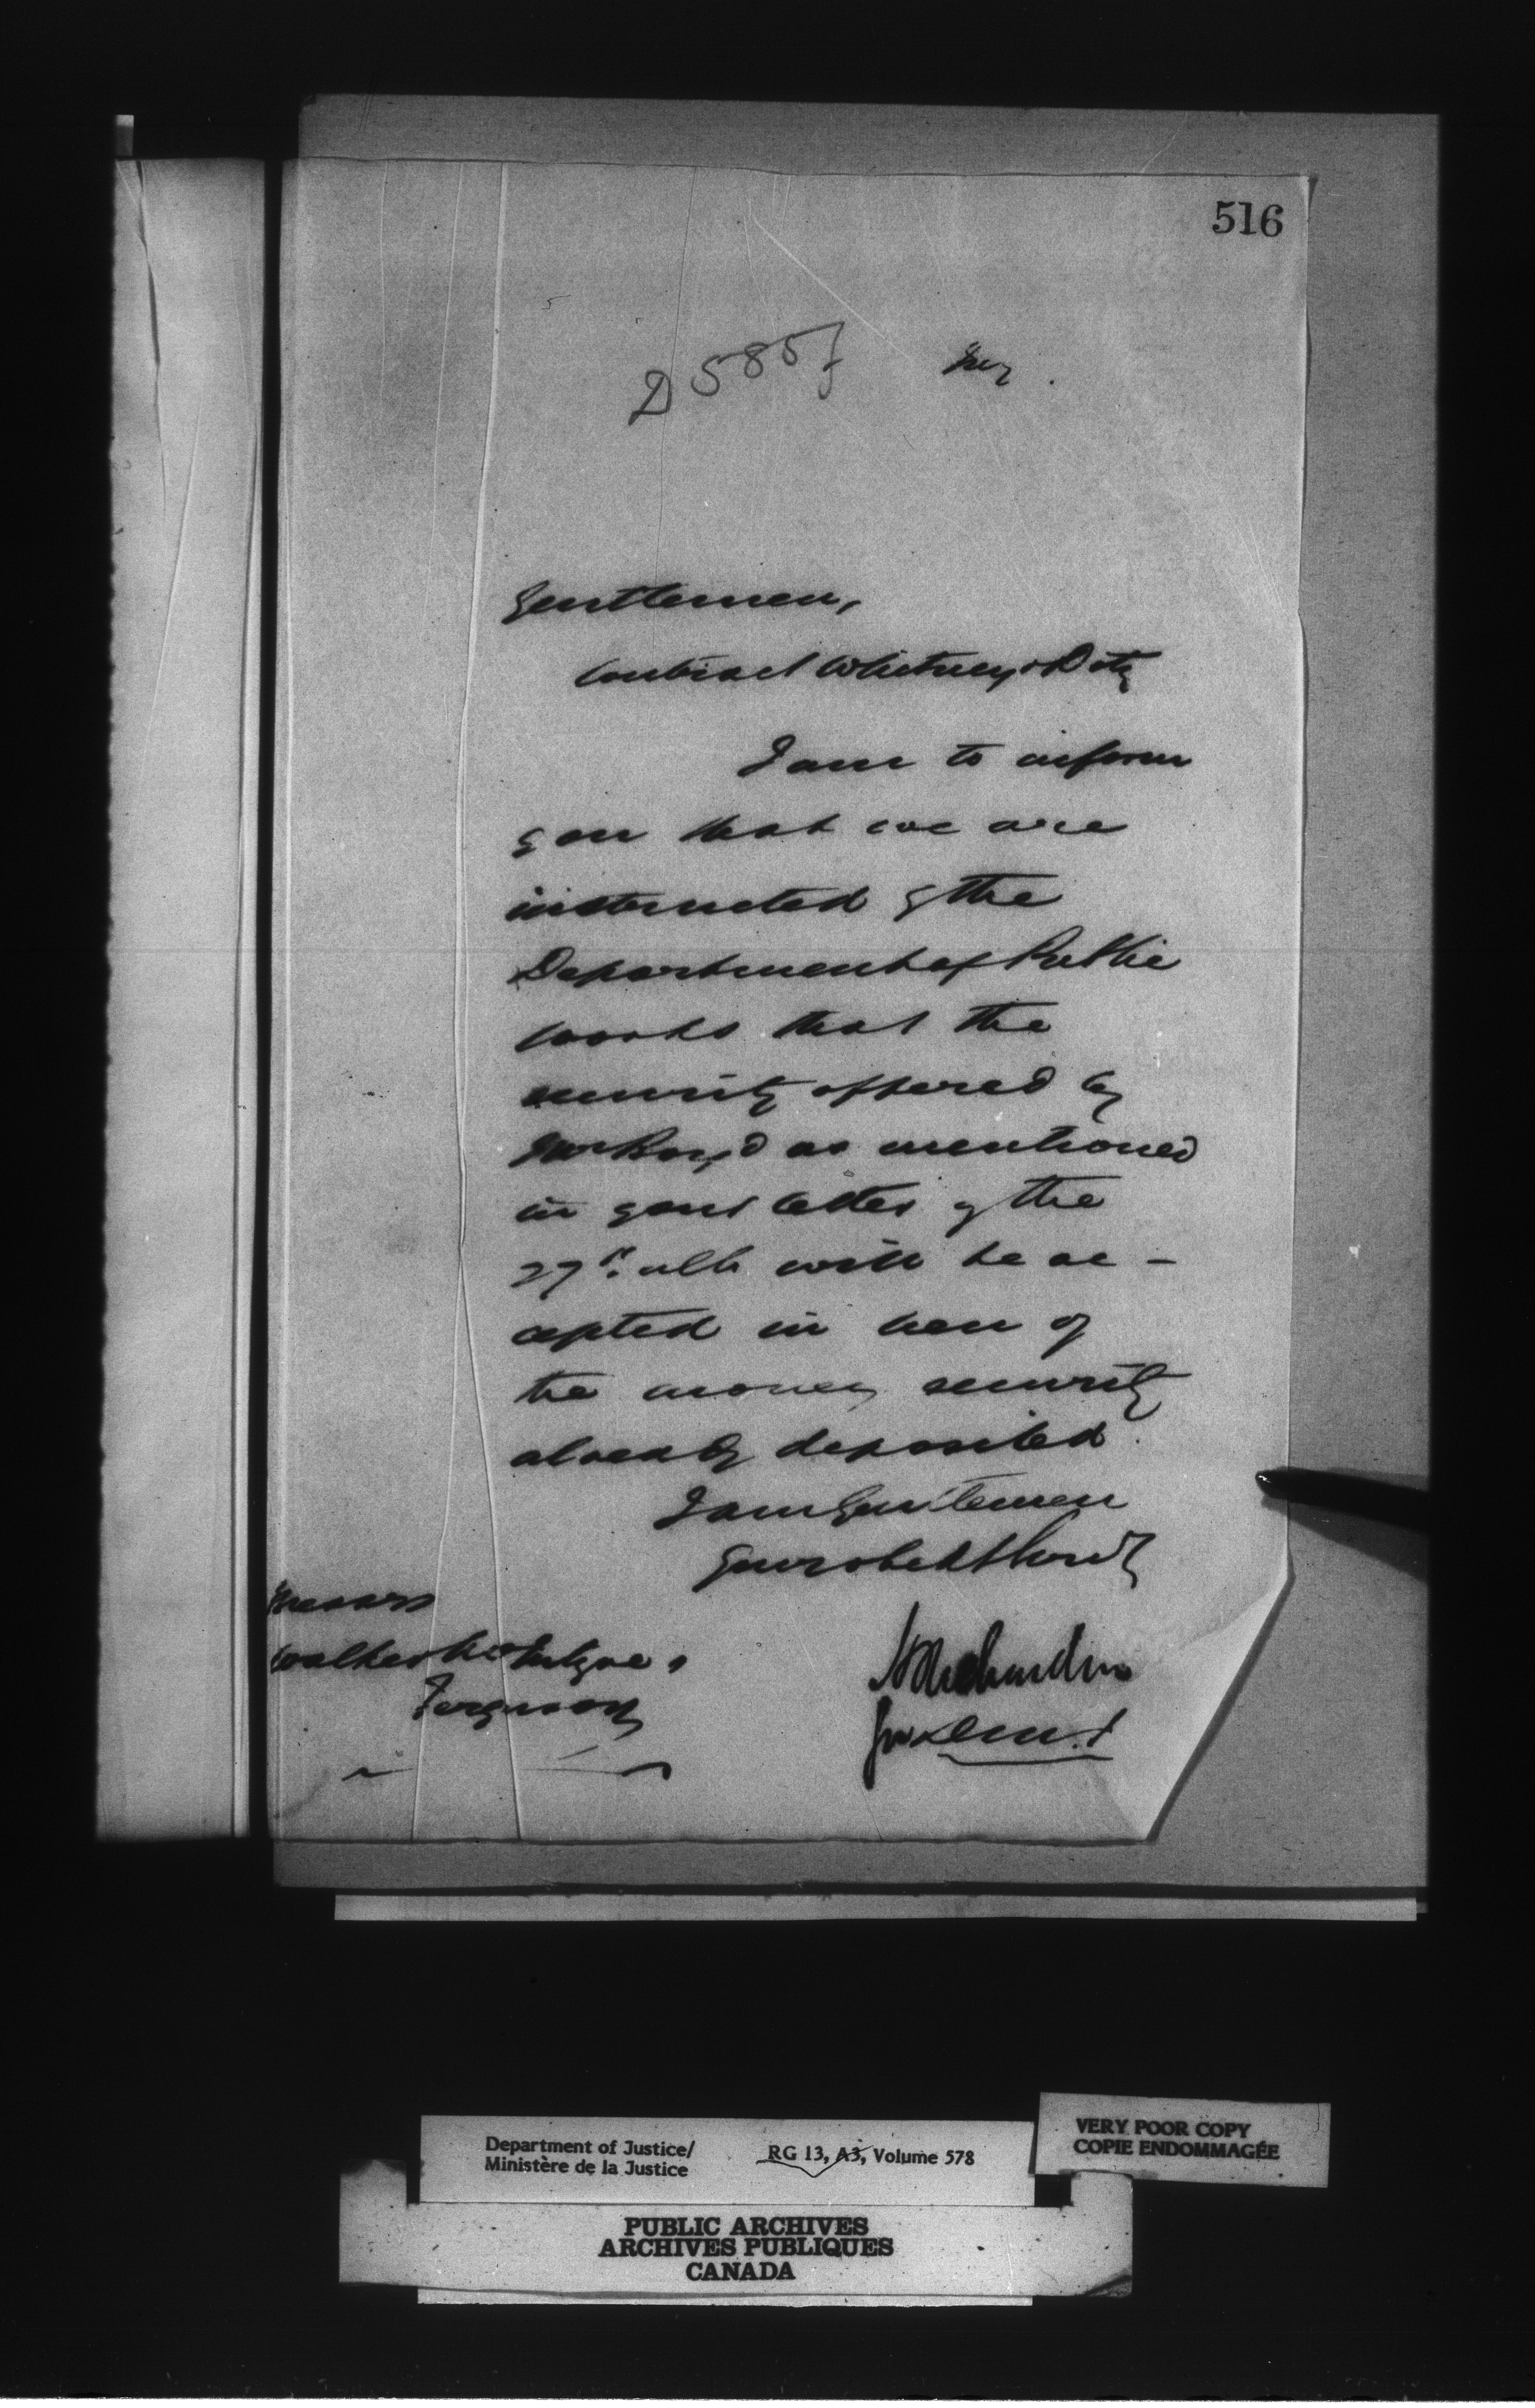 516
D 585
Gentlemen,
Contract Whitney & Doty
I am to inform
you that we are
instructed by the
Department of Public
Works that the
security offered by
Mr Boyd as mentioned
in your letter of the
27th ulto will be ac-
cepted in lieu of
the money security
already deposited.
I am Gentlemen
Your obedt Servt
Messrs
Walker McIntyre &
Ferguson
A Richardson
for D.M.J
Department of Justice/
Ministère de la Justice
RG 13, A3, Volume 578
VERY POOR COPY
COPIE ENDOMMAGÉE
PUBLIC ARCHIVES
ARCHIVES PUBLIQUES
CANADA